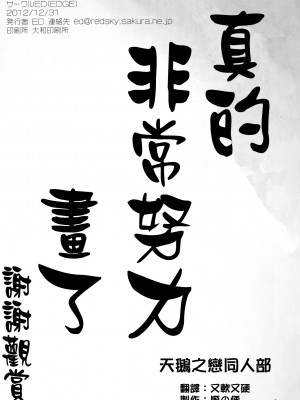 サークルED[EDGE]
2012/12/31
発行者 ED 連絡先 ed@redsky.sakura.ne.jp
印刷所 大和印刷所
真的
非常努力
畫了
謝謝觀賞
天鵝之戀同人部
翻譯：又軟又硬